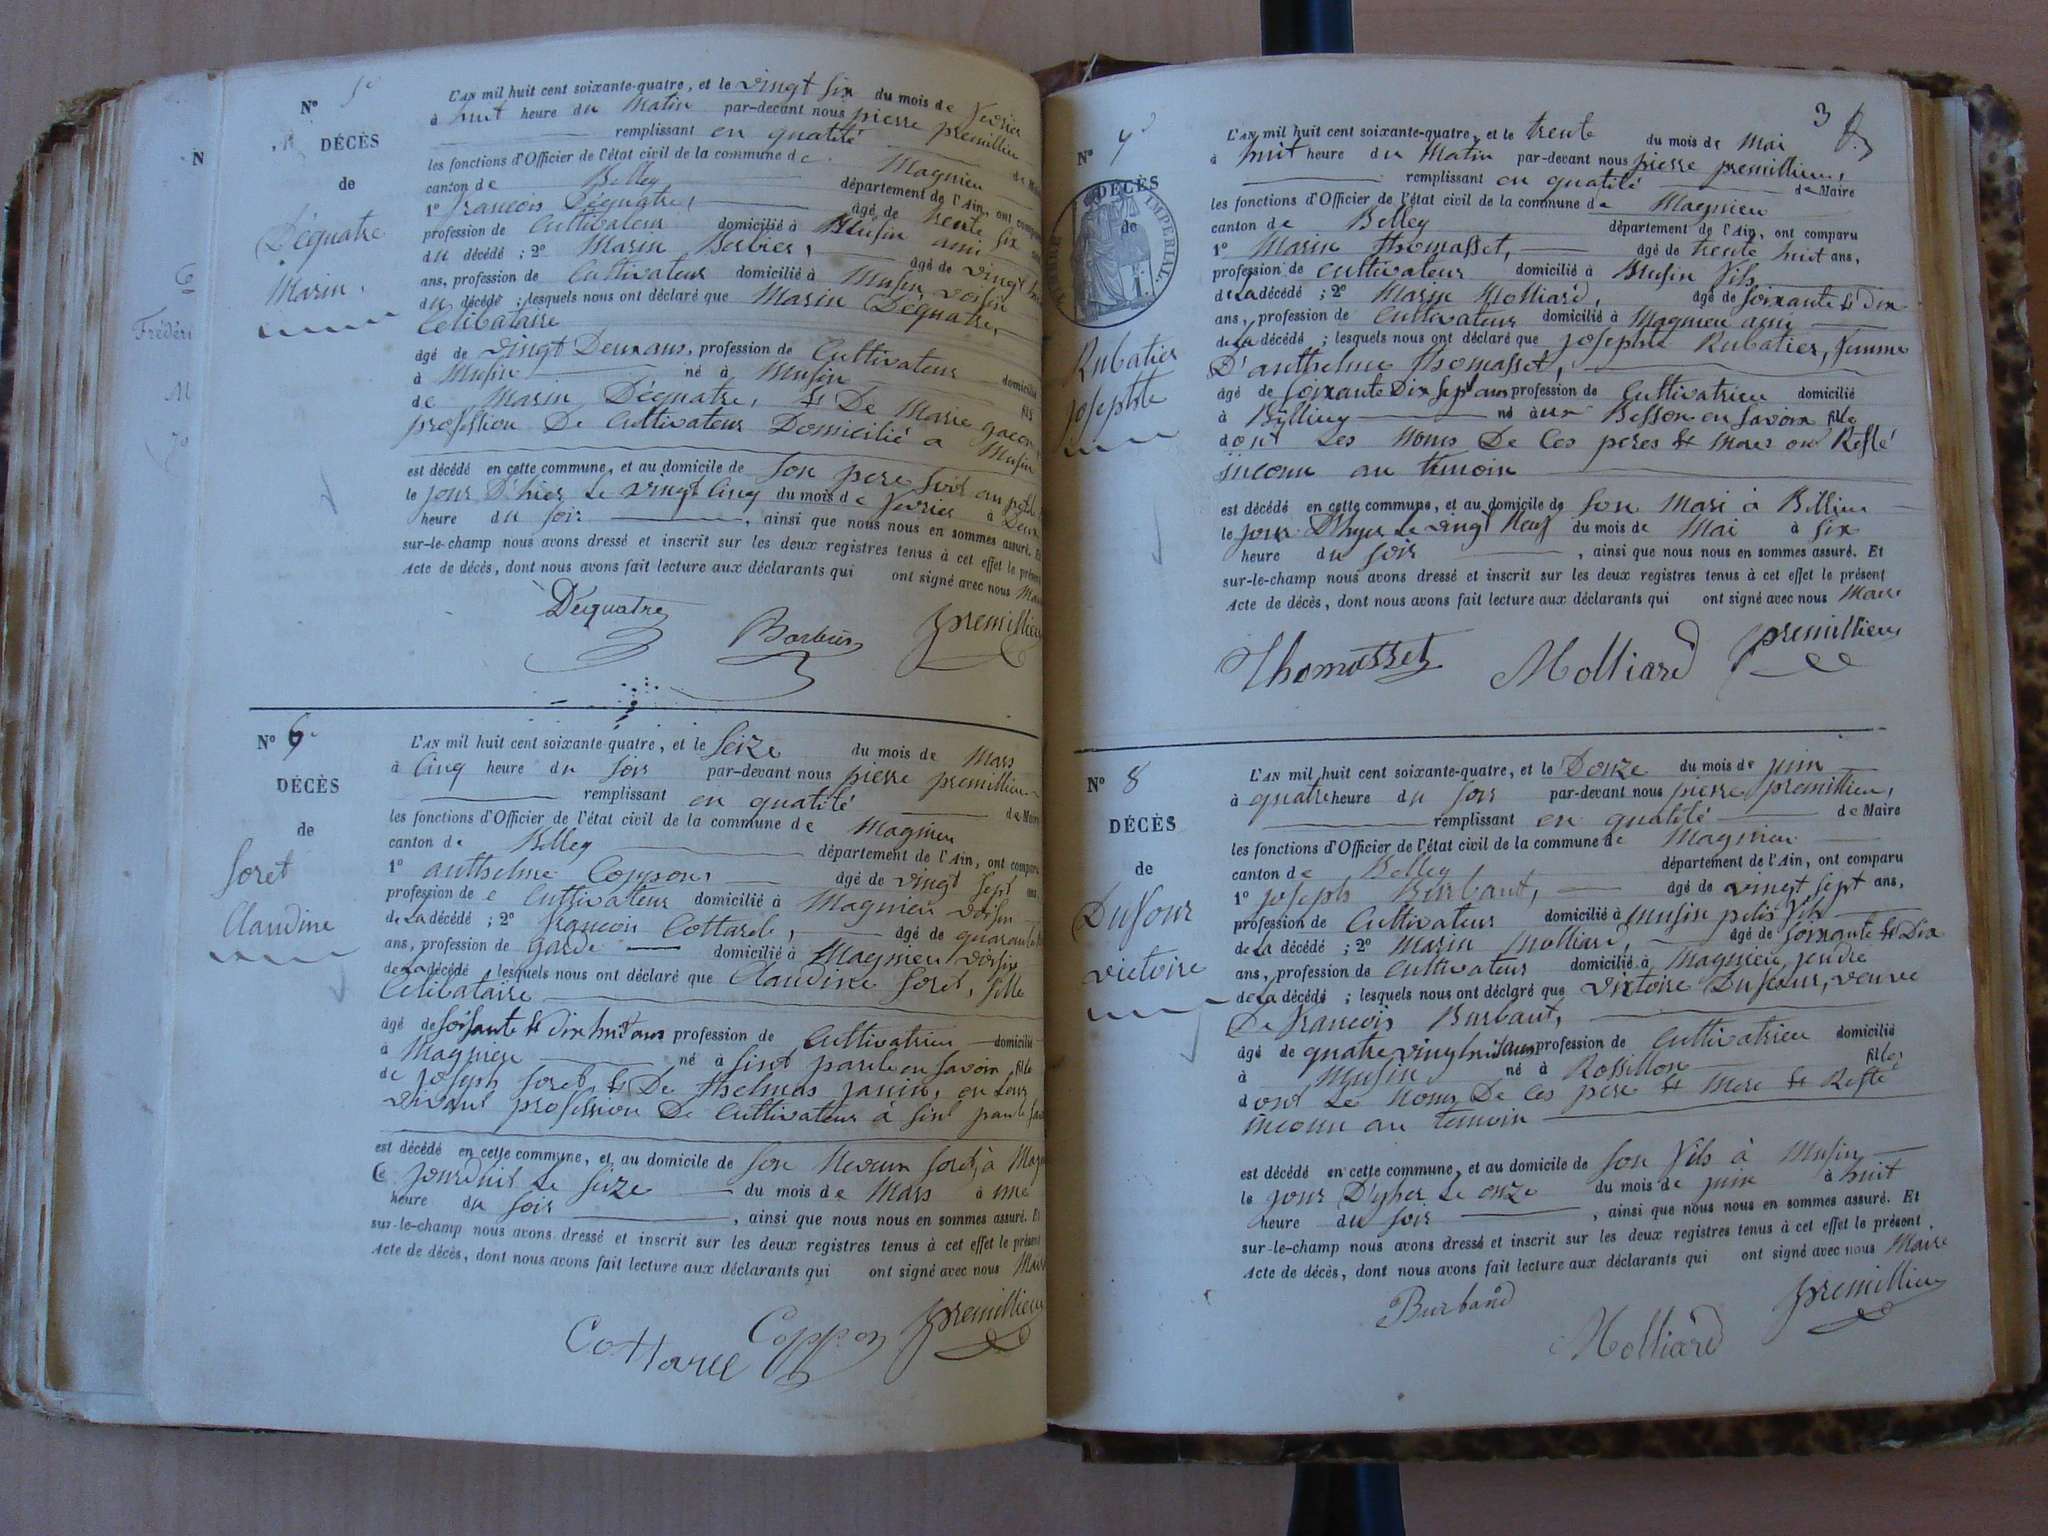 N
Frédéri
M
Nº 5e
DÉCÈS
de
Déquatre
Marin.
L'AN mil huit cent soixante-quatre, et le vingt six du mois de fevrier
à huit heure du Matin par-devant nous pierre premillieu
remplissant en qualité de Maire
les fonctions d'Officier de l'état civil de la commune de Magnieu
canton de Belley département de l'Ain, ont comparu
1º francois Déquatre, âgé de trente six
profession de Cultivateur domicilié à Musin ami
du décédé ; 2º Marin Berbier, âgé de vingt
ans, profession de Cultivateur domicilié à Musin voisin
du décédé ; lesquels nous ont déclaré que Marin Déquatre,
Celibataire
âgé de vingt Deux ans, profession de Cultivateur domicilié
à Musin né à Musin fils
de Marin Déquatre, et De Marie gacon
profession De Cultivateur Domicilié a Musin
est décédé en cette commune, et au domicile de Son pere
le jour D'hier Le vingt Cinq du mois de fevrier à Deux
heure du soir, ainsi que nous nous en sommes assuré. Et
sur-le-champ nous avons dressé et inscrit sur les deux registres tenus à cet effet le présent
Acte de décès, dont nous avons fait lecture aux déclarants qui ont signé avec nous Maire
Déquatre Barbier premillieu
Nº 6e
DÉCÈS
de
foret
Claudine
L'AN mil huit cent soixante-quatre, et le Seize du mois de Mars
à Cinq heure du soir par-devant nous pierre premillieu
remplissant en qualité de Maire
les fonctions d'Officier de l'état civil de la commune de Magnieu
canton de Belley département de l'Ain, ont comparu
1º anthelme Coppon âgé de vingt sept ans,
profession de Cultivateur domicilié à Magnieu voisin
de La décédé ; 2º francois Cottarel, âgé de quarante
ans, profession de garde domicilié à Magnieu voisin
de La décédé lesquels nous ont déclaré que Claudine foret, fille
Celibataire
âgé de soisante et dix huit ans profession de Cultivatrieu domicilié
à Magnieu né à Sint paul en Savoin fille
de joseph foret, et De thelmas janin, en Leur
vivant profession De Cultivateur à Sint paul
est décédé en cette commune, et au domicile de Son Neveux foret, à
Ce jourduit Le Seize du mois de Mars à une
heure du soir, ainsi que nous nous en sommes assuré. Et
sur-le-champ nous avons dressé et inscrit sur les deux registres tenus à cet effet le présent
Acte de décès, dont nous avons fait lecture aux déclarants qui ont signé avec nous Maire
Cottarel Coppon premillieu
3
Nº 7e
DÉCÈS
de
IMPÉRIAL
Rubatier
josephte
L'AN mil huit cent soixante-quatre, et le trente du mois de Mai
à huit heure du Matin par-devant nous pierre premillieu,
remplissant en qualité de Maire
les fonctions d'Officier de l'état civil de la commune de Magnieu
canton de Belley département de l'Ain, ont comparu
1º Marin thomasset, âgé de trente huit ans,
profession de cultivateur domicilié à Musin fils
de La décédé ; 2º Marin Molliard, âgé de soixante et Dix
ans, profession de Cultivateur domicilié à Magnieu ami
de La décédé ; lesquels nous ont déclaré que josephte Rubatier, femme
D'anthelme thomasset,
âgé de soixante Dix sept ans profession de Cultivatrieu domicilié
à Billieu né à Besson en Savoin fille
dont Les Noms De Ces peres et Meres on Resté
inconu au temoin
est décédé en cette commune, et au domicile de Son Mari à Billieu
le jour D'hyer Le vingt Neuf du mois de Mai à six
heure du soir, ainsi que nous nous en sommes assuré. Et
sur-le-champ nous avons dressé et inscrit sur les deux registres tenus à cet effet le présent
Acte de décès, dont nous avons fait lecture aux déclarants qui ont signé avec nous Maire
Thomasset Molliard premillieu
Nº 8
DÉCÈS
de
Dufour
victoire
L'AN mil huit cent soixante-quatre, et le Douze du mois de juin
à quatre heure du soir par-devant nous pierre premillieu,
remplissant en qualité de Maire
les fonctions d'Officier de l'état civil de la commune de Magnieu
canton de Belley département de l'Ain, ont comparu
1º joseph Burbaut, âgé de vingt sept ans,
profession de Cultivateur domicilié à Musin petis fils
de La décédé ; 2º Marin Molliard, âgé de soixante et Dix
ans, profession de Cultivateur domicilié à Magnieu jendre
de La décédé ; lesquels nous ont déclaré que victoire Dufour, veuve
De francois Burbaut,
âgé de quatre vingt huit ans profession de Cultivatrieu domicilié
à Musin né à Rossillon fille
dont Le Noms De Ces pere et Mere et Resté
inconu au temoin
est décédé en cette commune, et au domicile de Son fils à Musin
le jour D'yher Le onze du mois de juin à huit
heure du soir, ainsi que nous nous en sommes assuré. Et
sur-le-champ nous avons dressé et inscrit sur les deux registres tenus à cet effet le présent
Acte de décès, dont nous avons fait lecture aux déclarants qui ont signé avec nous Maire
Burband Molliard premillieu